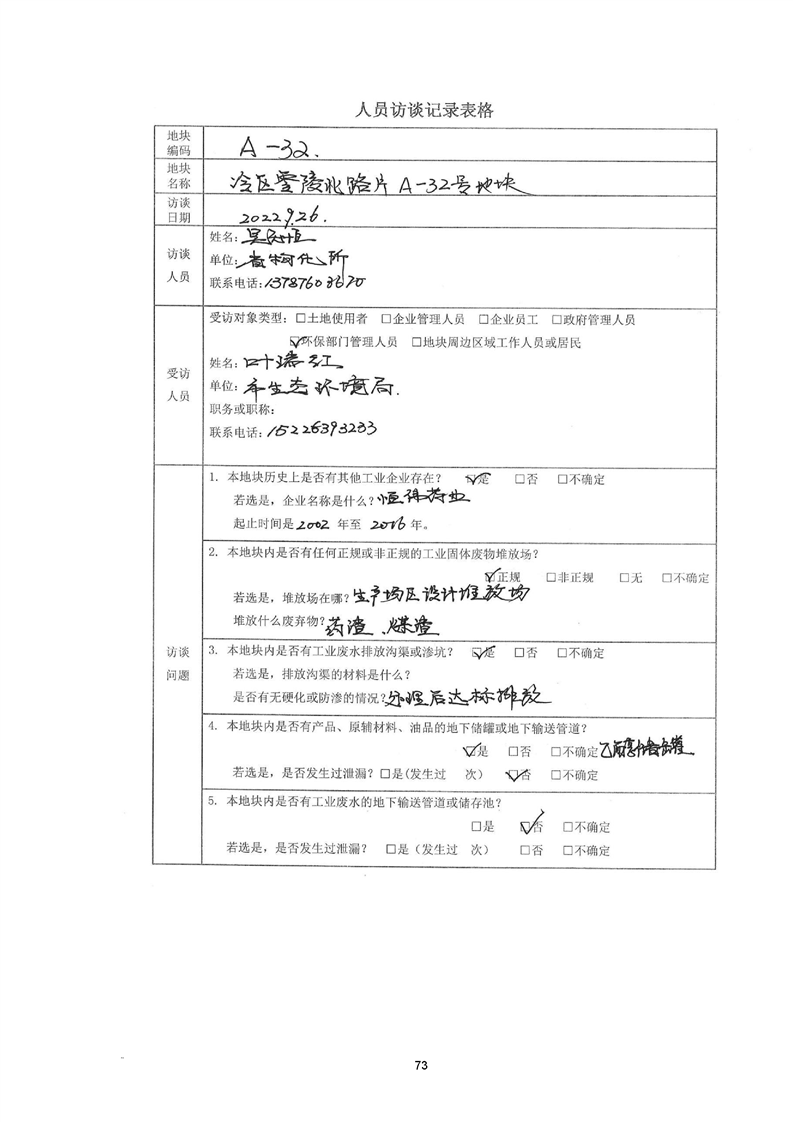 人员访谈记录表格
地块编码 A-32.
地块名称 冷区零陵北路片A-32号地块
访谈日期 2022.9.26.
访谈人员
姓名:
单位: 省物化所
联系电话:
受访人员
受访对象类型: □土地使用者 □企业管理人员 □企业员工 □政府管理人员
☑环保部门管理人员 □地块周边区域工作人员或居民
姓名: 叶瑞红
单位: 市生态环境局.
职务或职称:
联系电话: 15226393233
访谈问题
1. 本地块历史上是否有其他工业企业存在? ☑是 □否 □不确定
若选是, 企业名称是什么? 恒伟药业
起止时间是 2002 年至 2016 年。
2. 本地块内是否有任何正规或非正规的工业固体废物堆放场?
☑正规 □非正规 □无 □不确定
若选是, 堆放场在哪? 生产场区设计堆放场
堆放什么废弃物? 药渣、煤渣
3. 本地块内是否有工业废水排放沟渠或渗坑? ☑是 □否 □不确定
若选是, 排放沟渠的材料是什么?
是否有无硬化或防渗的情况? 处理后达标排放
4. 本地块内是否有产品、原辅材料、油品的地下储罐或地下输送管道?
☑是 □否 □不确定
若选是, 是否发生过泄漏? □是(发生过 次) ☑否 □不确定
5. 本地块内是否有工业废水的地下输送管道或储存池?
□是 ☑否 □不确定
若选是, 是否发生过泄漏? □是(发生过 次) □否 □不确定
73